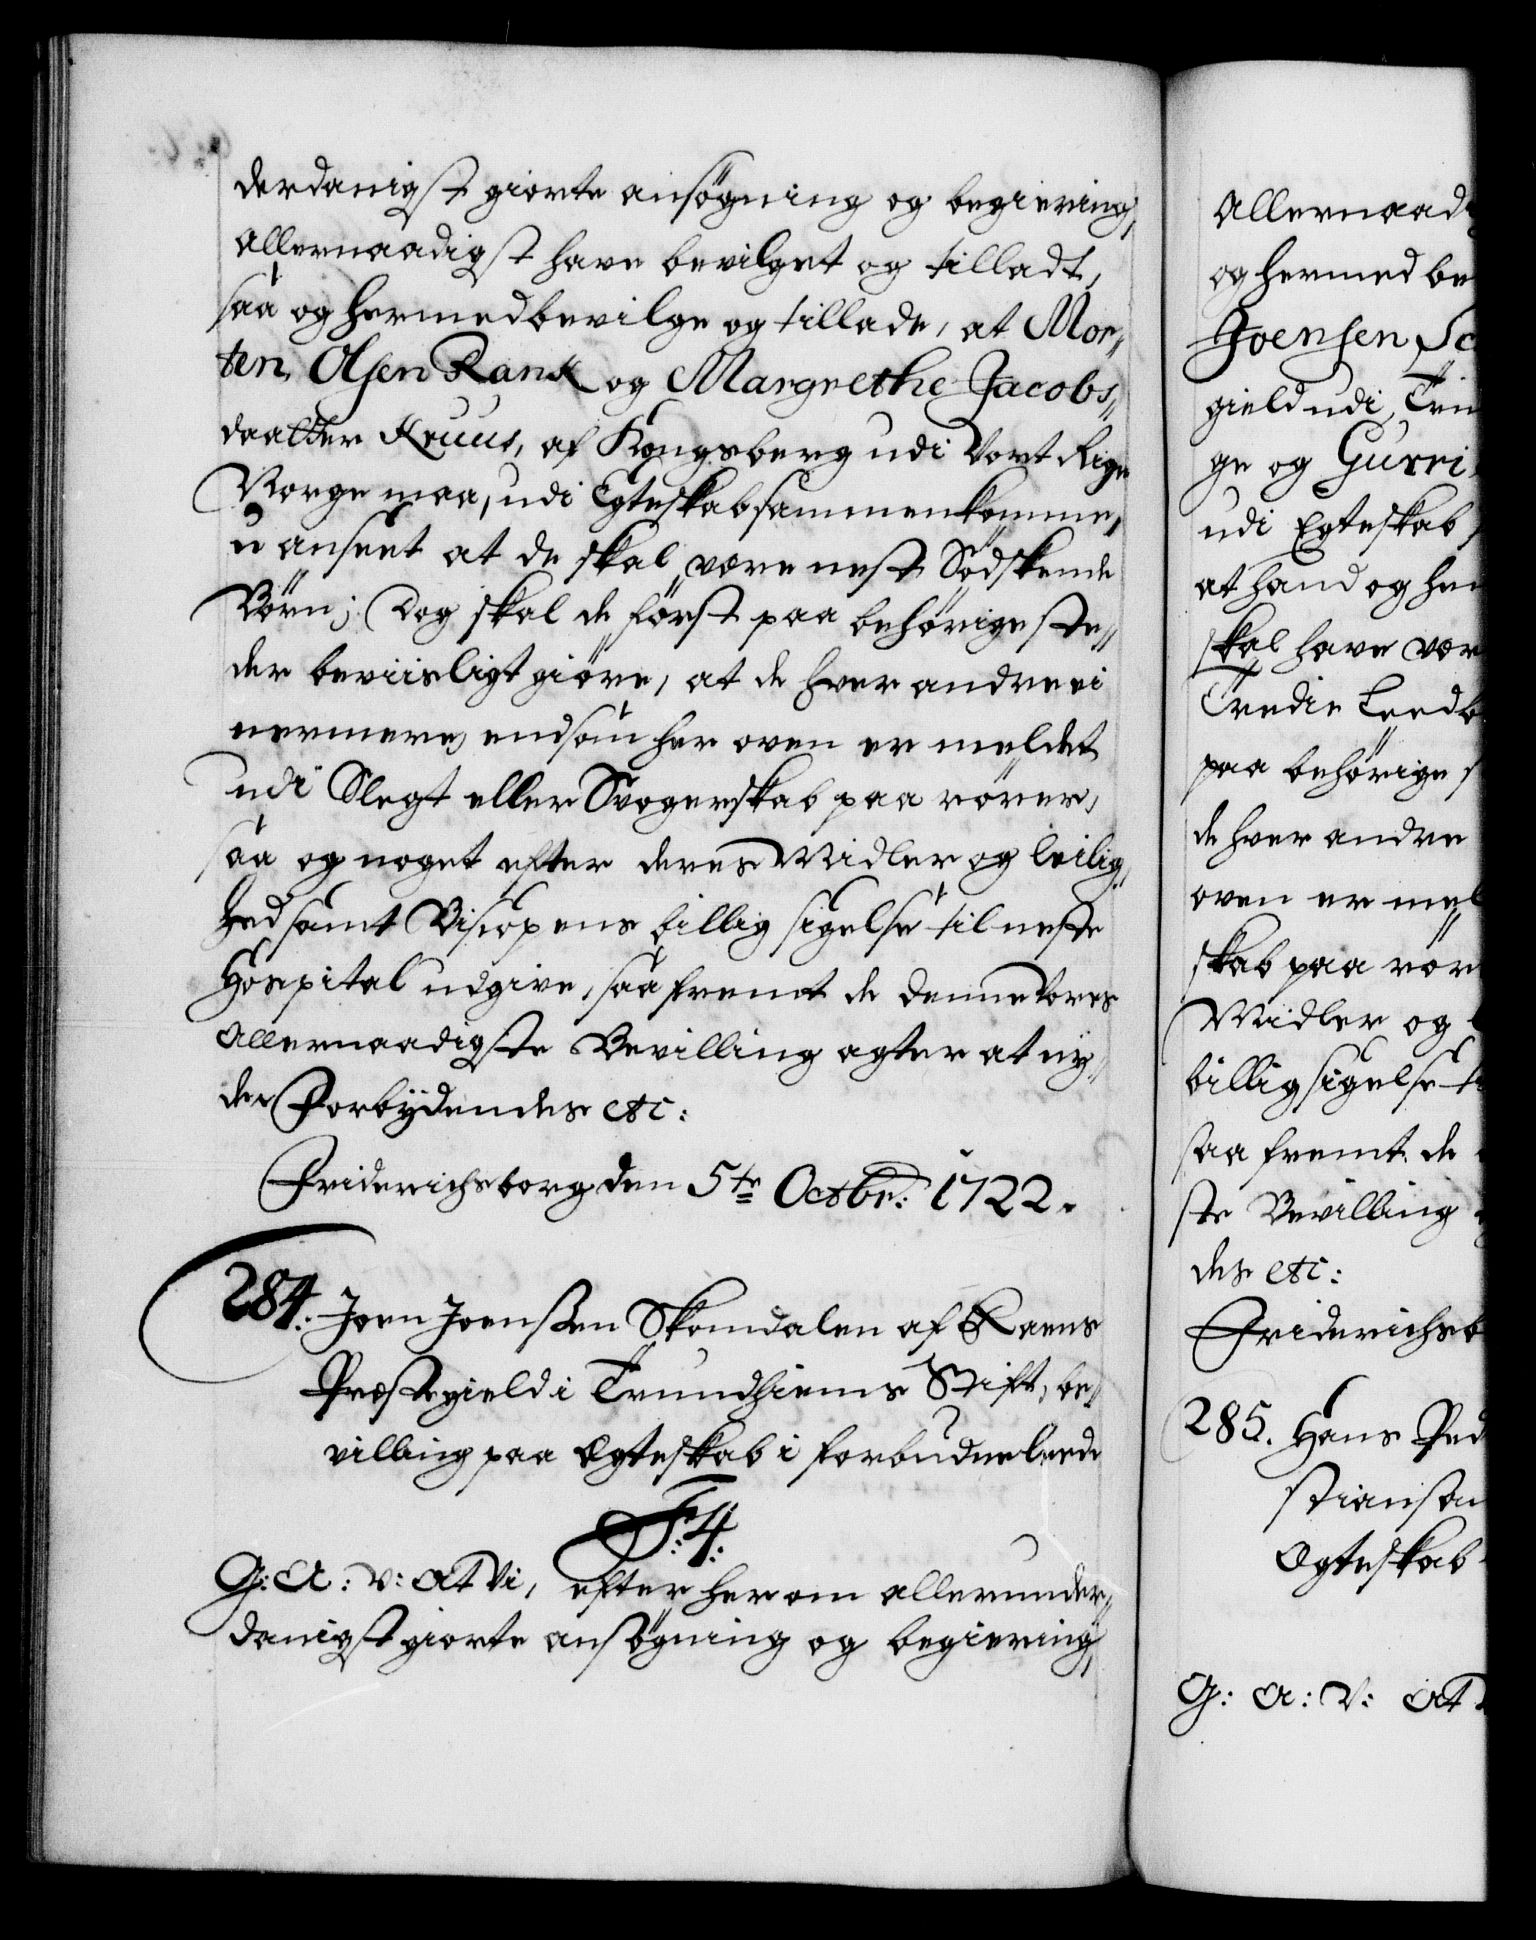 derdanigst giorte ansøgning og begiering,
Allernaadigst have bevilget og tilladt,
saa og hermed bevilge og tillade, at Mor„
ten, Olsen Rank og Margrethe Jacobs„
daatter Kruus, af Kongsberg udi Vort Rige
Norge maa, udi Egteskab sammenkomme,
u anseet at de skal være nest Södskende
Börn; Dog skal de först paa behörige ste„
der beviisligt giöre, at de hver andre ei
nermere, end som her oven er meldet
udi Slegt eller Svogerskab paa rörer,
saa og noget efter deres Midler og leilig„
hed samt Biscopens billig sigelse til neste
Hospital udgive, saa fremt de denne Vores
Allernaadigste Bevilling agter at ny„
de. Forbydendes etc:
Friderichsborg den 5te Octbr: 1722.
284. Joen Joenssen Skomdalen af Raens
Præstegield i Trundhiems Stift, be„
villing paa Egteskab i forbudne leede
F: 4:
G: A: V: At Vi, efter herom allerunder„
danigst giorte ansögning og begiering,
Allernaad
og hermed be
Joensen Sc
gield udi Trun
ge og Gurri
udi Egteskab
at hand og hen
skal have vær
Tredie Leed b
paa behörige s
de hver andre
oven er mel
skab paa rör
Midler og l
billig sigelse ti
saa fremt de
ste Bevilling
des etc:
Friderichsb
285. Hans Ped
stiansan
Egteskab
G: A: V: At